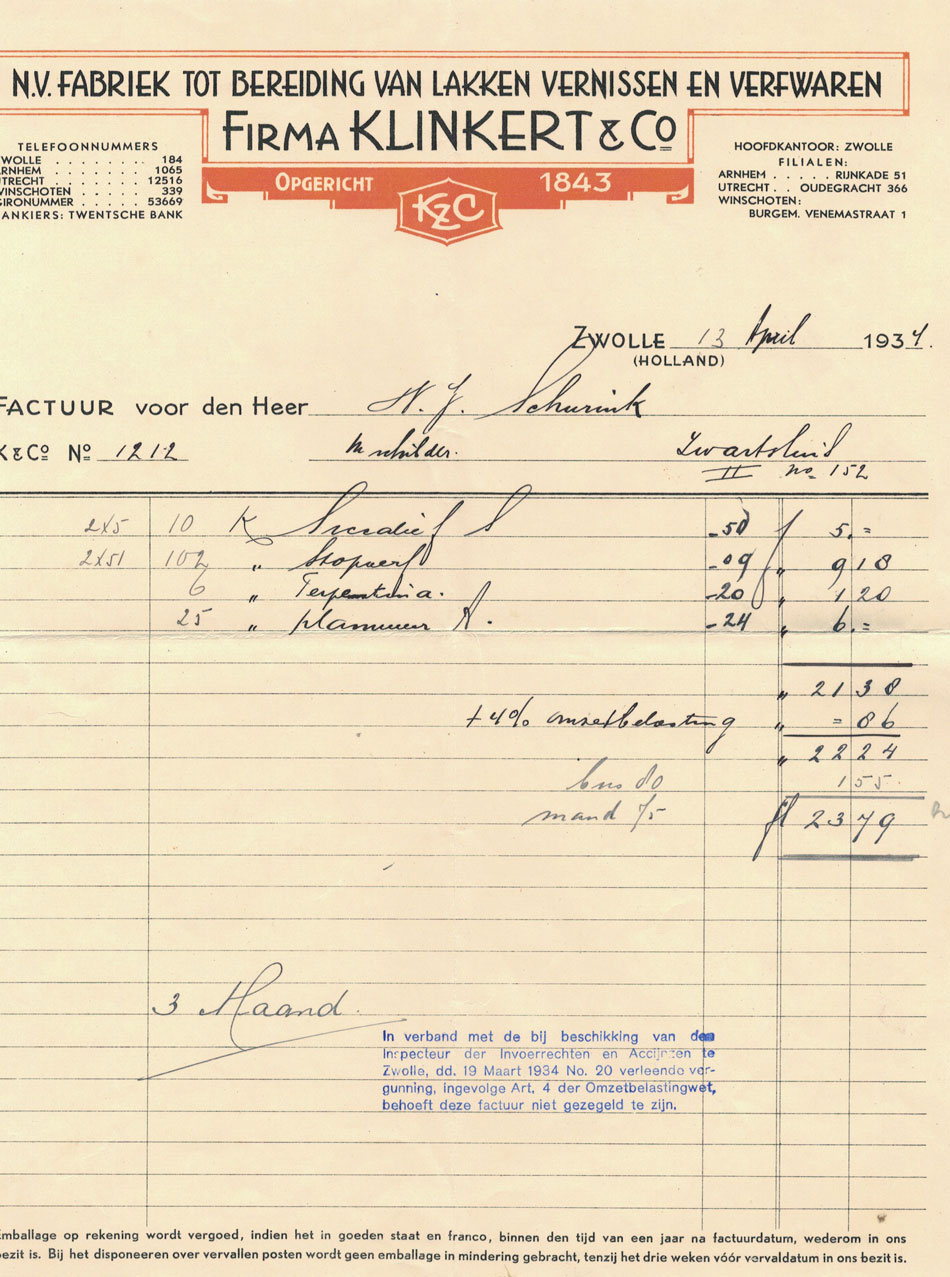 N.V. FABRIEK TOT BEREIDING VAN LAKKEN VERNISSEN EN VERFWAREN
FIRMA KLINKERT & Co
OPGERICHT 1843
KZC
TELEFOONNUMMERS
WOLLE . . . . . . . . 184
ARNHEM . . . . . . . 1065
UTRECHT . . . . . . 12516
WINSCHOTEN . . . . 339
GIRONUMMER . . . . 53669
ANKIERS: TWENTSCHE BANK
HOOFDKANTOOR: ZWOLLE
FILIALEN:
ARNHEM . . . . . RIJNKADE 51
UTRECHT . . OUDEGRACHT 366
WINSCHOTEN:
BURGEM. VENEMASTRAAT 1
ZWOLLE 13 April 1934.
(HOLLAND)
FACTUUR voor den Heer Schurink
K & Co No 1212 schilder. Zwartsluis
II no 152
2x5 10 K Siccatief S -50 f 5.=
2x51 102 " Stopverf -09 " 9 18
6 " Terpentina. -20 " 1 20
25 " plamuur A. -24 " 6.=
" 21 38
+4% omzetbelasting " = 86
" 22 24
bus 80 1 55
mand 75 fl 23 79
3 Maand.
In verband met de bij beschikking van den
Inspecteur der Invoerrechten en Accijnzen te
Zwolle, dd. 19 Maart 1934 No. 20 verleende ver-
gunning, ingevolge Art. 4 der Omzetbelastingwet,
behoeft deze factuur niet gezegeld te zijn.
Emballage op rekening wordt vergoed, indien het in goeden staat en franco, binnen den tijd van een jaar na factuurdatum, wederom in ons
bezit is. Bij het disponeeren over vervallen posten wordt geen emballage in mindering gebracht, tenzij het drie weken vóór vervaldatum in ons bezit is.